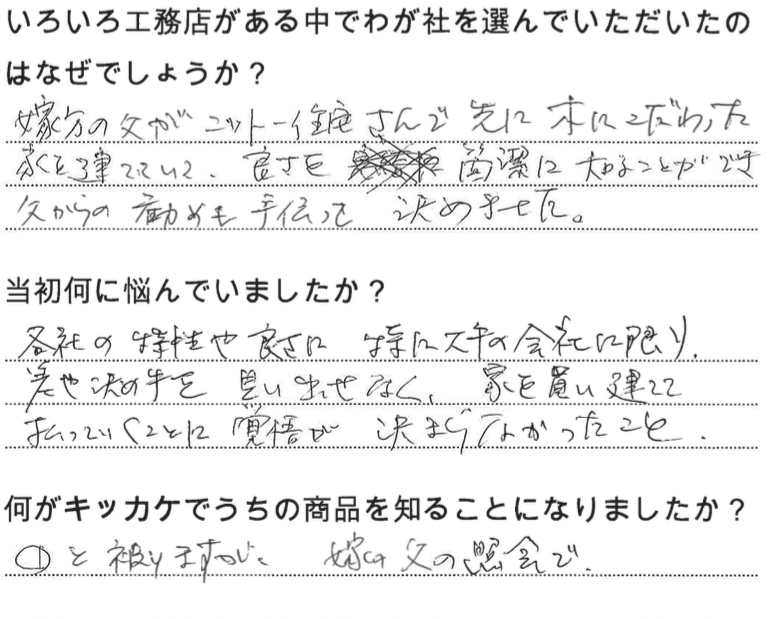 いろいろ工務店がある中でわが社を選んでいただいたの
はなぜでしょうか？
嫁方の父がニットー住宅さんで先に木にこだわった
家を建てていて、良さを簡潔に知ることができ
父からの勧めも手伝って決めました。
当初何に悩んでいましたか？
各社の特性や良さに特に大手の会社に限り、
差や決め手を見い出せなく、家を買い建てて
払っていくことに覚悟が決まらなかったこと．
何がキッカケでうちの商品を知ることになりましたか？
①と被りますが、嫁の父の照会で．